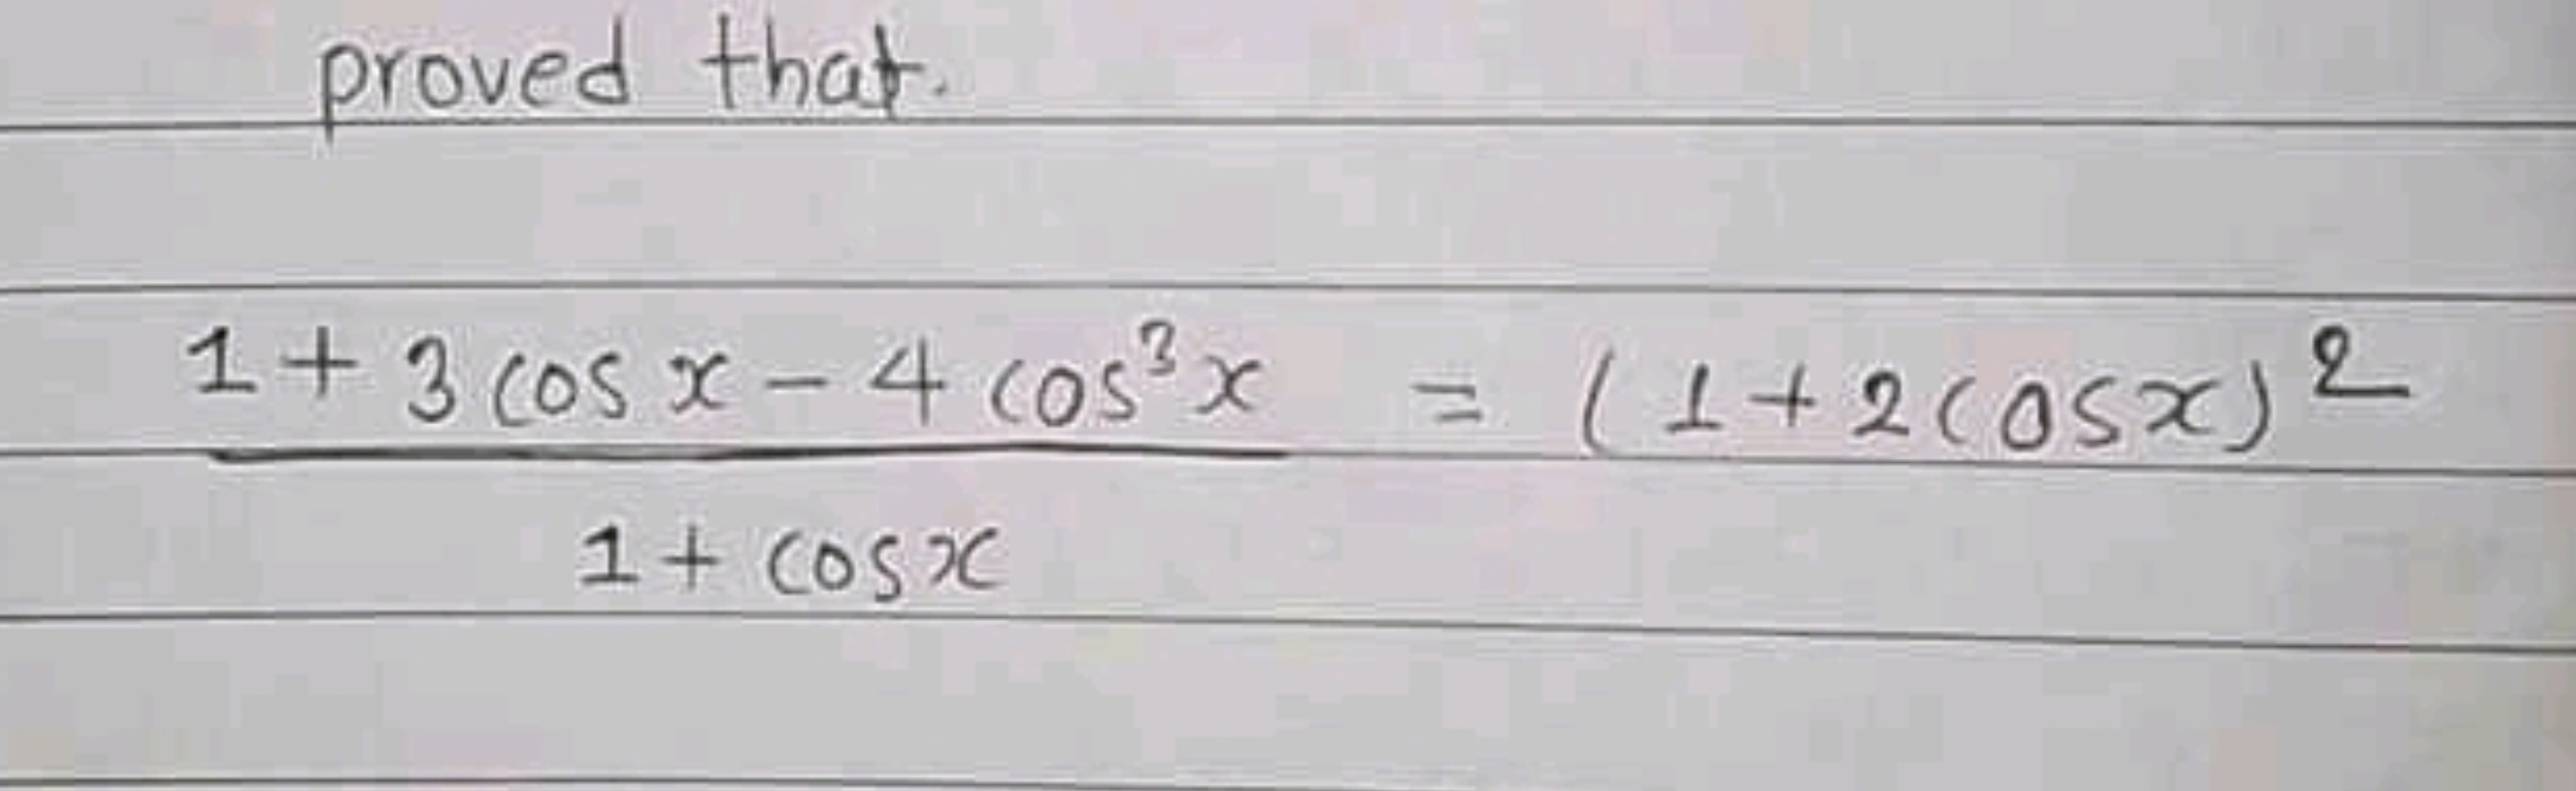 proved that.
1 + 3 cos x - 4 cos³x = (1 + 2 cosx)²
1 + cosx